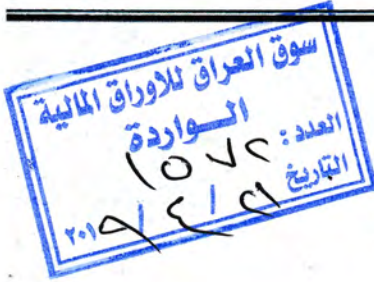 سوق العراق للاوراق المالية
الــواردة
العدد : ١٥٧٢
التاريخ ٢١ / ٤ / ٢٠١٩